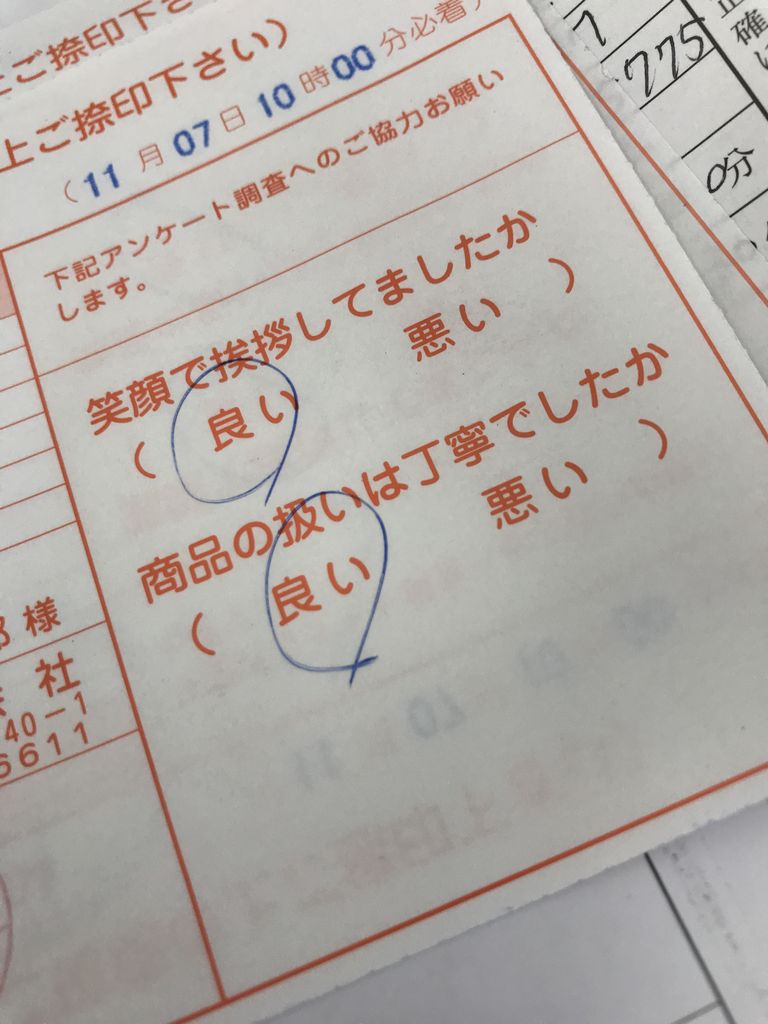 上ご捺印下さい
上ご捺印下さい）
（11月07日10時00分必着）
下記アンケート調査へのご協力お願い
します。
笑顔で挨拶してましたか
（ 良い 悪い ）
商品の扱いは丁寧でしたか
（ 良い 悪い ）
様
社
40-1
6611
7
775
0分
確